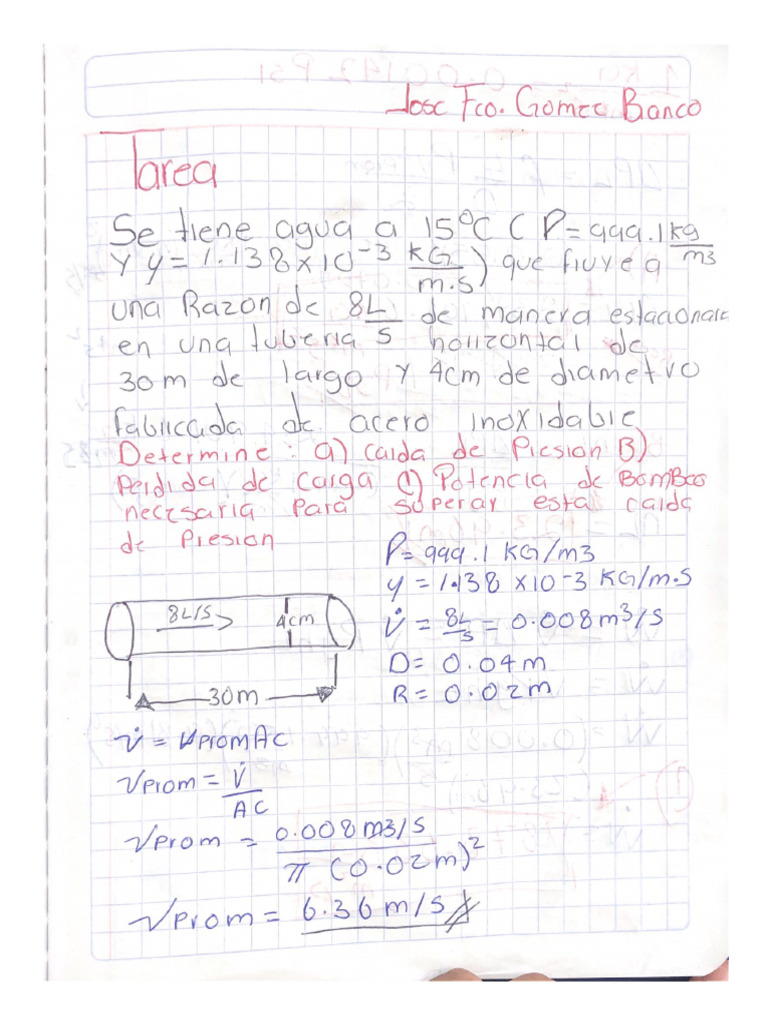 Jose Fco. Gomez Banco
Tarea
Se tiene agua a 15°C ( P= 999.1 kg/m3
y y = 1.138 x 10-3 KG/m.s ) que fluye a
una Razon de 8L/s de manera estacionaria
en una tuberia horizontal de
30m de largo y 4cm de diametro
fabricada de acero inoxidable
Determine : a) caida de Presion B)
Perdida de carga C) Potencia de Bombeo
necesaria para superar esta caida
de Presion
P= 999.1 KG/m3
y = 1.138 x10-3 KG/m.s
V̇ = 8L/s = 0.008 m3/s
D= 0.04m
R= 0.02m
8L/s
4cm
30m
V̇ = VpromAc
Vprom = V̇/AC
Vprom = 0.008m3/s / π (0.02m)²
Vprom = 6.36 m/s